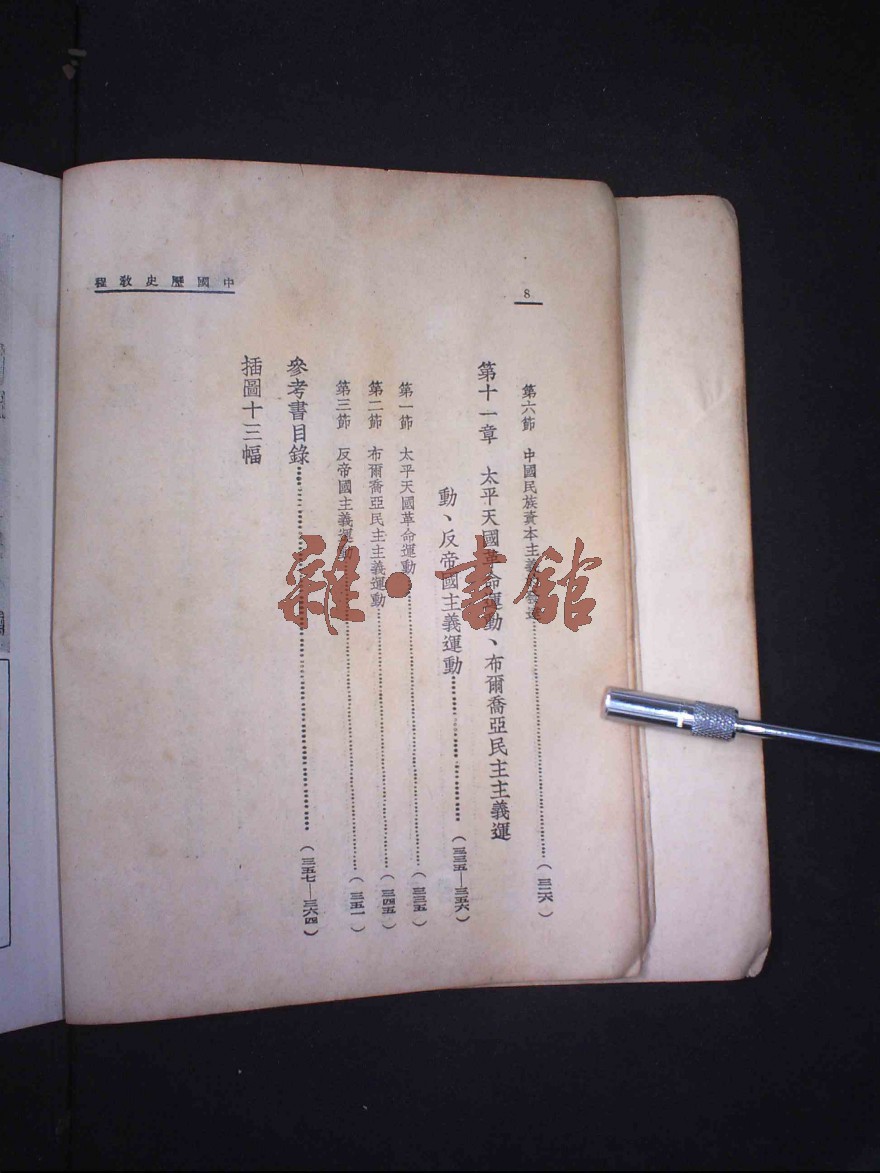 中國歷史教程
8
第六節 中國民族資本主義
(三二六)
第十一章 太平天國革命運動、布爾喬亞民主主義運
動、反帝國主義運動
(三三五—三五六)
第一節 太平天國革命運動
(三三五)
第二節 布爾喬亞民主主義運動
(三四五)
第三節 反帝國主義運動
(三五一)
參考書目錄
(三五七—三六四)
插圖十三幅
雜·書館